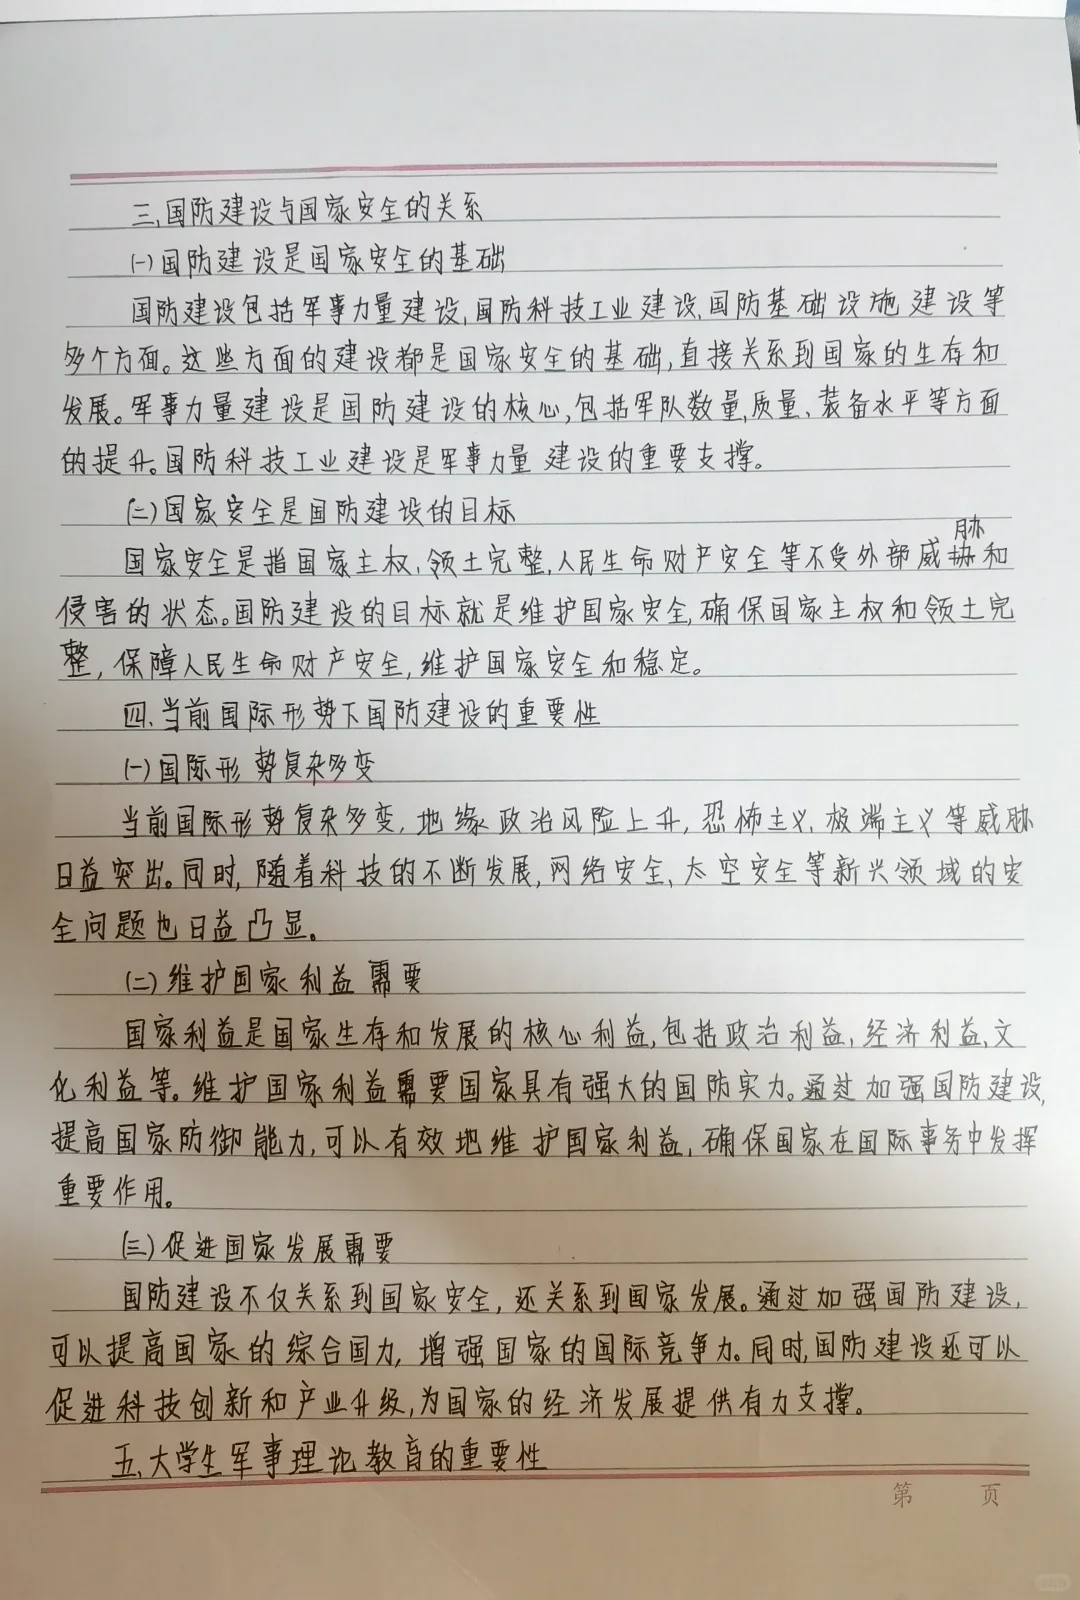 三、国防建设与国家安全的关系
(一)国防建设是国家安全的基础
国防建设包括军事力量建设,国防科技工业建设,国防基础设施建设等
多个方面。这些方面的建设都是国家安全的基础,直接关系到国家的生存和
发展。军事力量建设是国防建设的核心,包括军队数量,质量、装备水平等方面
的提升。国防科技工业建设是军事力量建设的重要支撑。
(二)国家安全是国防建设的目标
胁
国家安全是指国家主权、领土完整,人民生命财产安全等不受外部威协和
侵害的状态。国防建设的目标就是维护国家安全,确保国家主权和领土完
整,保障人民生命财产安全,维护国家安全和稳定。
四、当前国际形势下国防建设的重要性
(一)国际形势复杂多变
当前国际形势复杂多变,地缘政治风险上升,恐怖主义、极端主义等威胁
日益突出。同时,随着科技的不断发展,网络安全、太空安全等新兴领域的安
全问题也日益凸显。
(二)维护国家利益需要
国家利益是国家生存和发展的核心利益,包括政治利益,经济利益,文
化利益等。维护国家利益需要国家具有强大的国防实力。通过加强国防建设,
提高国家防御能力,可以有效地维护国家利益,确保国家在国际事务中发挥
重要作用。
(三)促进国家发展需要
国防建设不仅关系到国家安全,还关系到国家发展。通过加强国防建设,
可以提高国家的综合国力,增强国家的国际竞争力。同时,国防建设还可以
促进科技创新和产业升级,为国家的经济发展提供有力支撑。
五、大学生军事理论教育的重要性
第 页